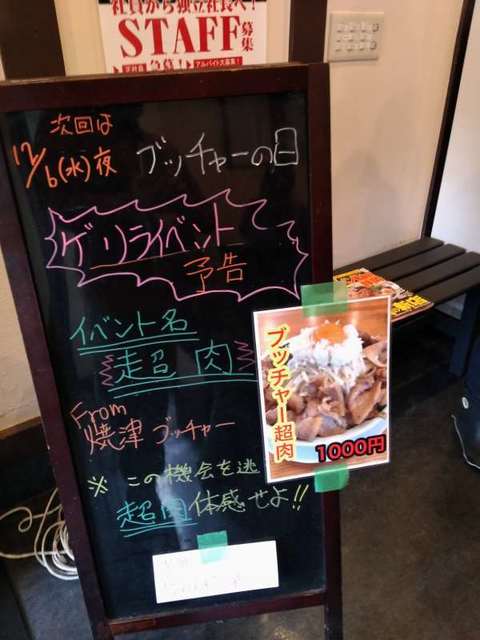 社員から独立社長へ!
STAFF募集
正社員 急募! アルバイト大募集!
次回は
12/6(水)夜 ブッチャーの日
ゲリライベント
予告
イベント名
超肉
From
焼津ブッチャー
※ この機会を逃
超肉体感せよ!!
ブッチャー超肉
1000円